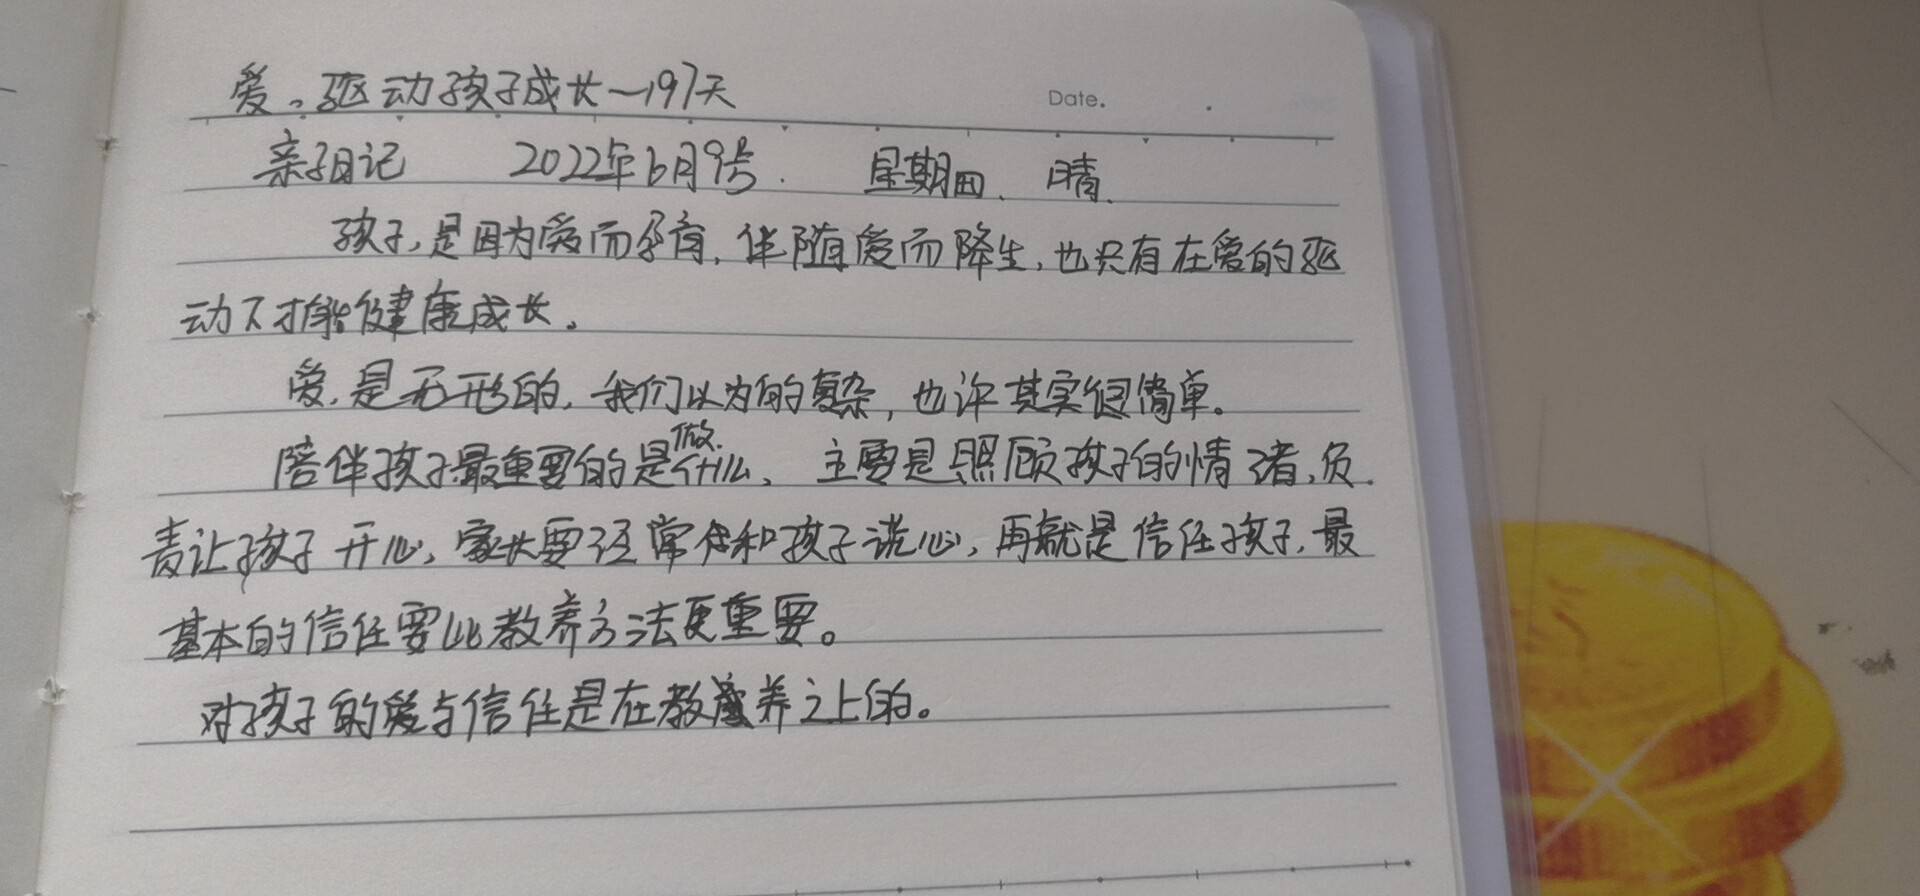 爱。驱动孩子成长一197天
Date.
亲子日记 2022年6月9号. 星期四、晴.
孩子,是因为爱而孕育,伴随爱而降生,也只有在爱的驱
动下才能健康成长。
爱,是无形的,我们以为的复杂,也许其实很简单。
陪伴孩子最重要的是做什么、主要是照顾孩子的情绪,负
责让孩子开心,家长要经常和孩子谈心,再就是信任孩子,最
基本的信任要比教养方法更重要。
对孩子的爱与信任是在教养之上的。